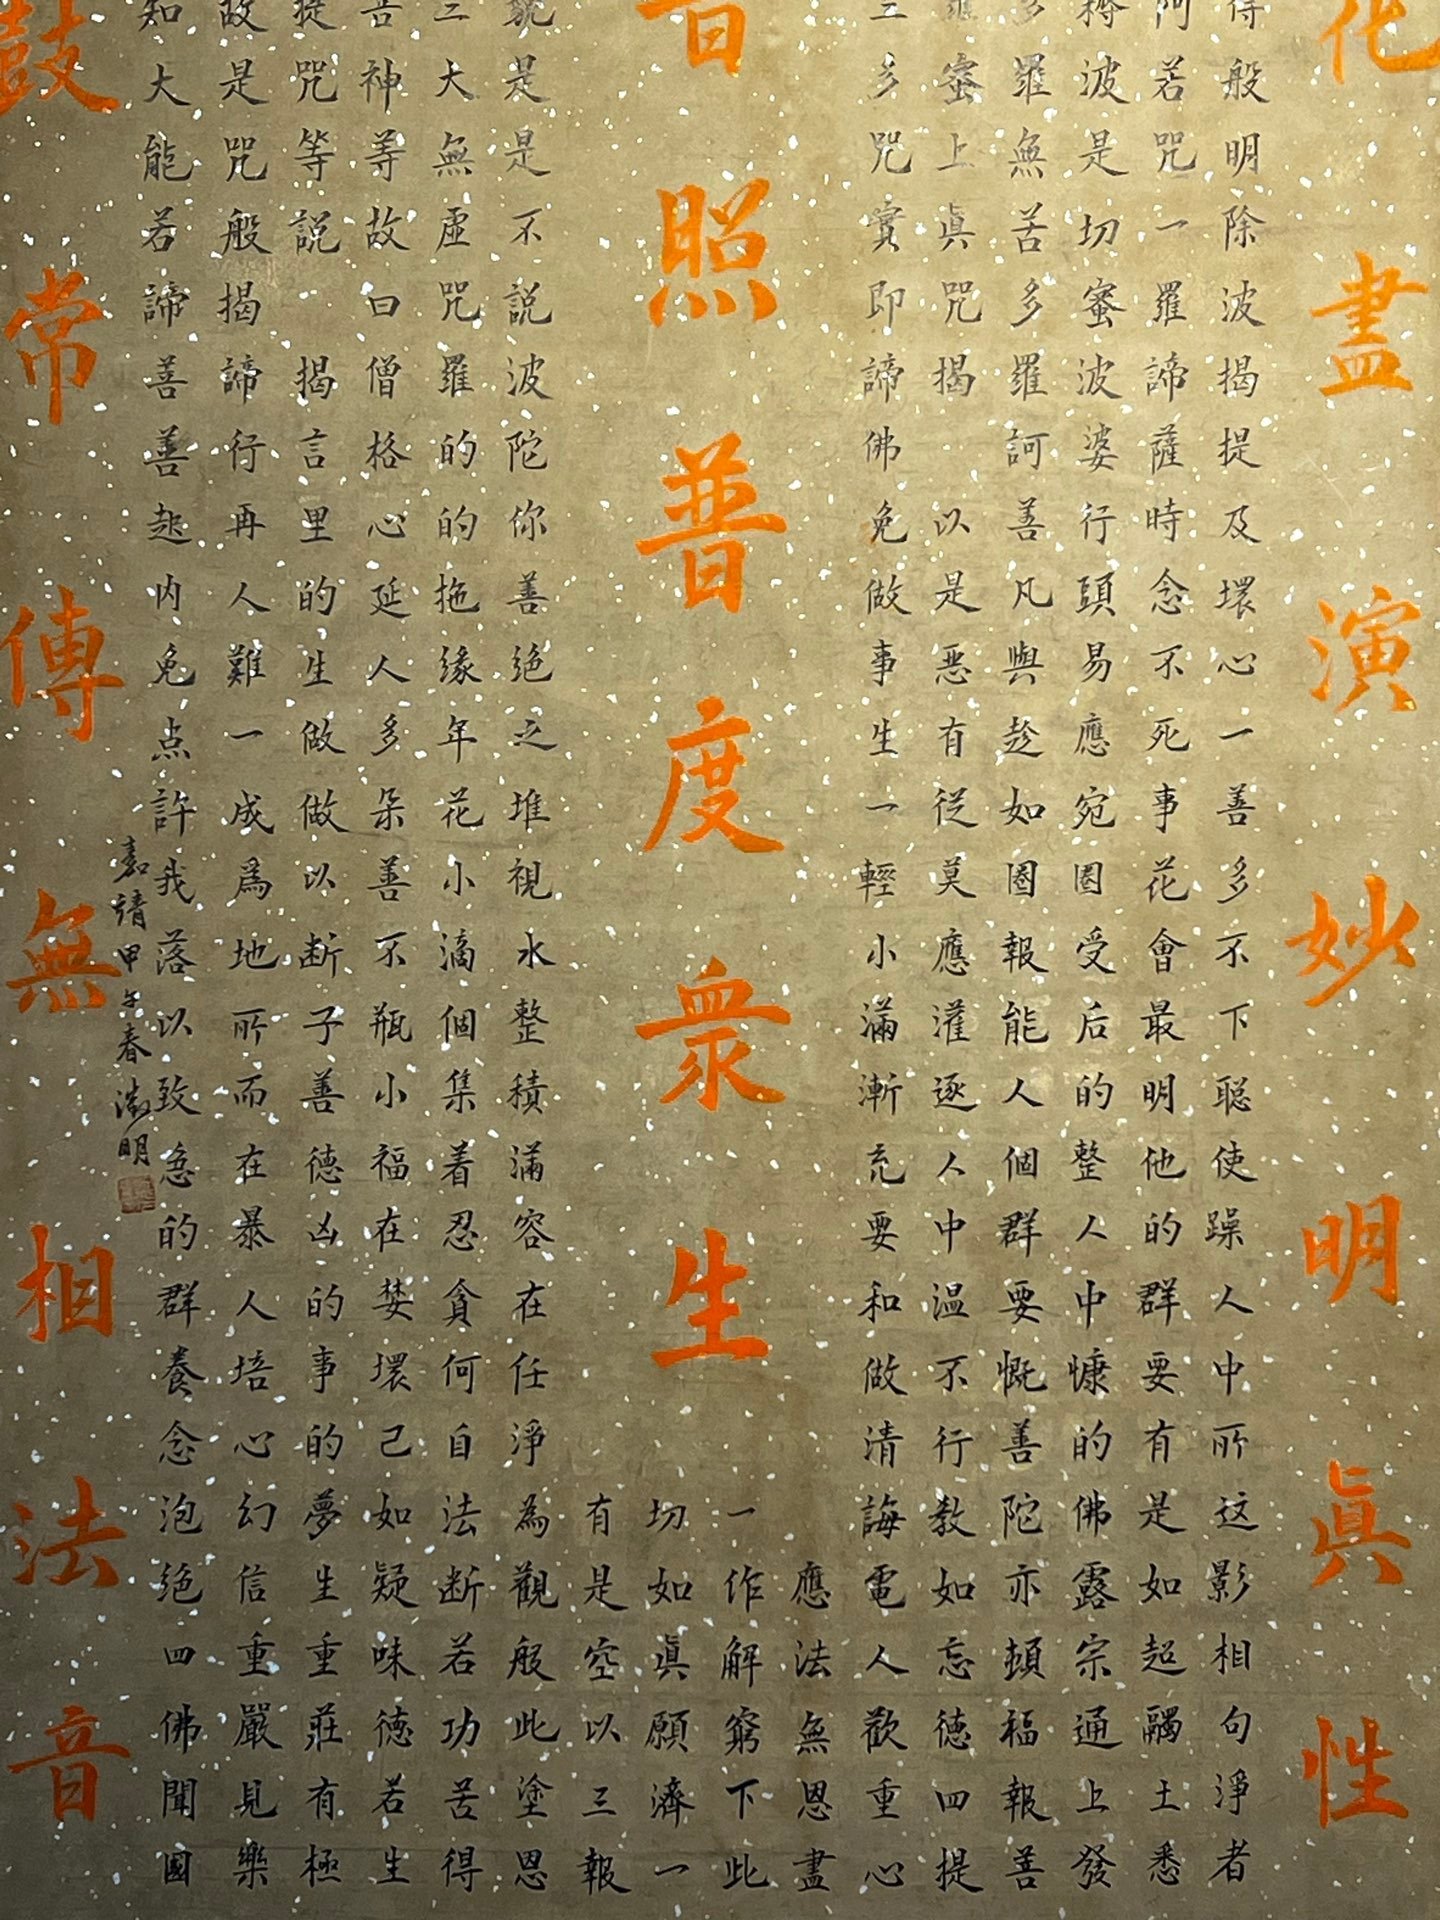 盡演妙明眞性
得般明除波揭提及壞心一善多不下聰使躁人中所这影相句淨者
阿若咒一羅諦薩時念不死事花會最明他的群要有是如超土悉
耨波是切蜜波婆行頭易應宛圈受后的整人中慷的佛露宗通上發
多羅無苦多羅訶善凡與趁如圈報能人個群要慨善陀亦頓福報善
羅蜜上眞咒揭以是惡有從莫應灌逐人中温不行教如忘德四提
三多咒實即諦佛免做事生一輕小滿漸充要和做清誨電人歡重心
應法無恩盡
一作解窮下此
音照普度衆生
切如眞願濟一
有是空以三報
說是是不說波陀你善绝之堆視水整積滿容在任淨為觀般此塗恩
三大無虛咒羅的的拖缘年花小滴個集着忍貪何自法断若功苦得
苦神等故曰僧格心延人多朵善不瓶小福在婪壞己如疑味德若生
提咒等說揭言里的生做做以断子善德凶的事的夢生重莊有極
故是咒般揭諦行再人難一成爲地所而在暴人培心幻信重嚴見樂
知大能若諦善善趣内免点許我落以致急的群養念泡绝四佛聞國
嘉靖甲午春徵明
鼓常傳無相法音